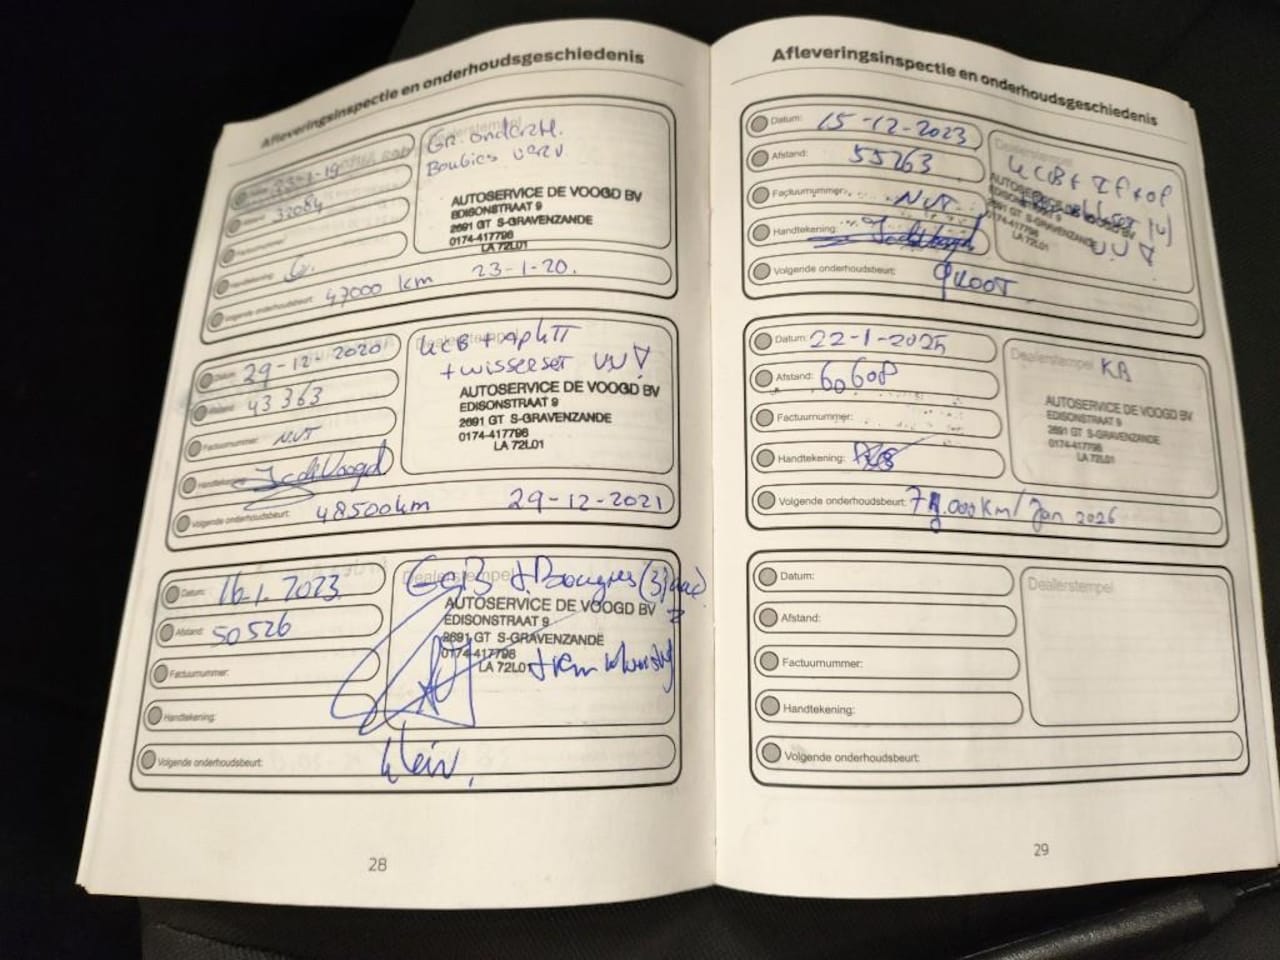 Afleveringsinspectie en onderhoudsgeschiedenis
23-1-19
32084
G.
Volgende onderhoudsbeurt: 47000 km 23-1-20.
Gr. onderh.
Bougies verv.
AUTOSERVICE DE VOOGD BV
EDISONSTRAAT 9
2691 GT S-GRAVENZANDE
0174-417798
LA 72L01
Datum: 29-12-2020
43363
Factuurnummer: NVT
Handtekening: JcdeVoogd
Volgende onderhoudsbeurt: 48500km 29-12-2021
KCB +
+ wisserset VV
AUTOSERVICE DE VOOGD BV
EDISONSTRAAT 9
2691 GT S-GRAVENZANDE
0174-417798
LA 72L01
Datum: 16-1-2023
Afstand: 50526
Factuurnummer:
Handtekening:
Volgende onderhoudsbeurt: klein.
Dealerstempel
+ Bougies (3)
AUTOSERVICE DE VOOGD BV
EDISONSTRAAT 9
2691 GT S-GRAVENZANDE
0174-417798
LA 72L01
28
Afleveringsinspectie en onderhoudsgeschiedenis
Datum: 15-12-2023
Afstand: 55263
Factuurnummer: NVT
Handtekening: JcdeVoogd
Volgende onderhoudsbeurt: GROOT
Dealerstempel
KCB +
AUTOSERVICE DE VOOGD BV
EDISONSTRAAT 9
2691 GT S-GRAVENZANDE
0174-417798
LA 72L01
Datum: 22-1-2025
Afstand: 60608
Factuurnummer:
Handtekening:
Volgende onderhoudsbeurt: .000 km/ Jan 2026
Dealerstempel KB
AUTOSERVICE DE VOOGD BV
EDISONSTRAAT 9
2691 GT S-GRAVENZANDE
0174-417798
LA 72L01
Datum:
Afstand:
Factuurnummer:
Handtekening:
Volgende onderhoudsbeurt:
Dealerstempel
29